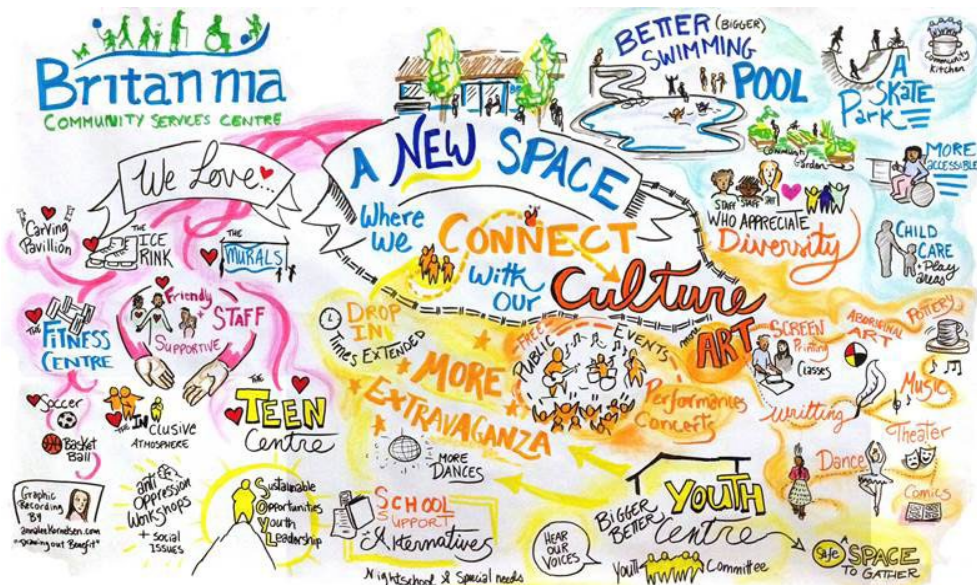 Britannia
COMMUNITY SERVICES CENTRE
We Love...
Carving
Pavillion
THE
ICE
RINK
THE
MURALS
THE
FITNESS
CENTRE
Friendly
STAFF
SUPPORTIVE
Soccer
Basket
Ball
THE INCLUSIVE
ATMOSPHERE
THE
TEEN
Centre
Graphic
Recording
BY
anti
Oppression
Workshops
+ social
ISSUES
Sustainable
Opportunities
Youth
Leadership
A NEW SPACE
Where
We
CONNECT
with
our
Culture
DROP
IN
Times EXTENDED
MORE
EXTRAVAGANZA
MORE
DANCES
FREE
PUBLIC
EVENTS
Performences
Concerts
SCHOOL
SUPPORT
Alternatives
Nightschool & Special needs
HEAR
OUR
VOICES
BIGGER
BETTER
YOUTH
Centre
Youth Committee
A
Safe SPACE
TO GATHER
BETTER (BIGGER)
SWIMMING
POOL
A
SKATE
Park
Community
Kitchen
Community
Garden
MORE
ACCESSIBLE
STAFF STAFF
WHO APPRECIATE
Diversity
CHILD
CARE
+ Play
areas
more
ART
SCREEN
Printing
Classes
ABORIGINAL
ART
POTTERY
Writting
Music
Theater
Dance
Comics